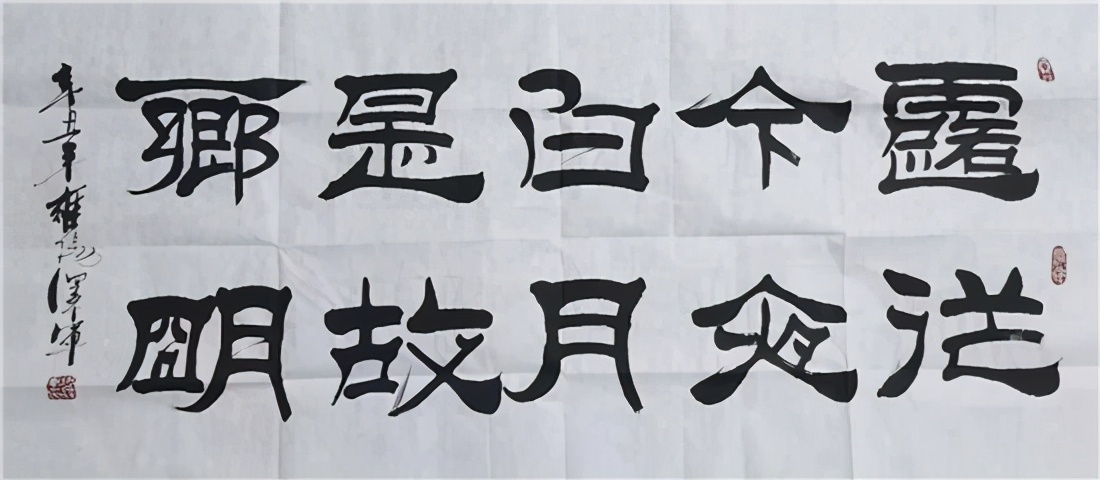 露從
今夜
白月
是故
鄉明
辛丑年澤軍